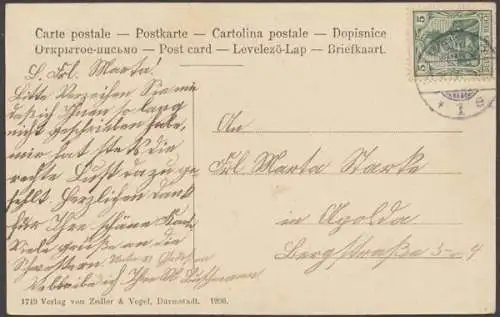 Carte postale — Postkarte — Cartolina postale — Dopisnice
Открытое-письмо — Post card — Levelező-Lap — Briefkaart.
5 5
L. Frl. Marta!
Bitte Verzeihen Sie mir
daß ich Ihnen so lang
nicht geschrieben habe,
mir hat stets die
rechte Lust dazu ge-
fehlt. Herzlichen Dank
für Ihre schöne Karte
Viele grüße an die
Schwestern
Verbleibe ich Ihr
An
Frl Marta Starke
in Apolda
Bergstraße
1749 Verlag von Zedler & Vogel, Darmstadt. 1906.